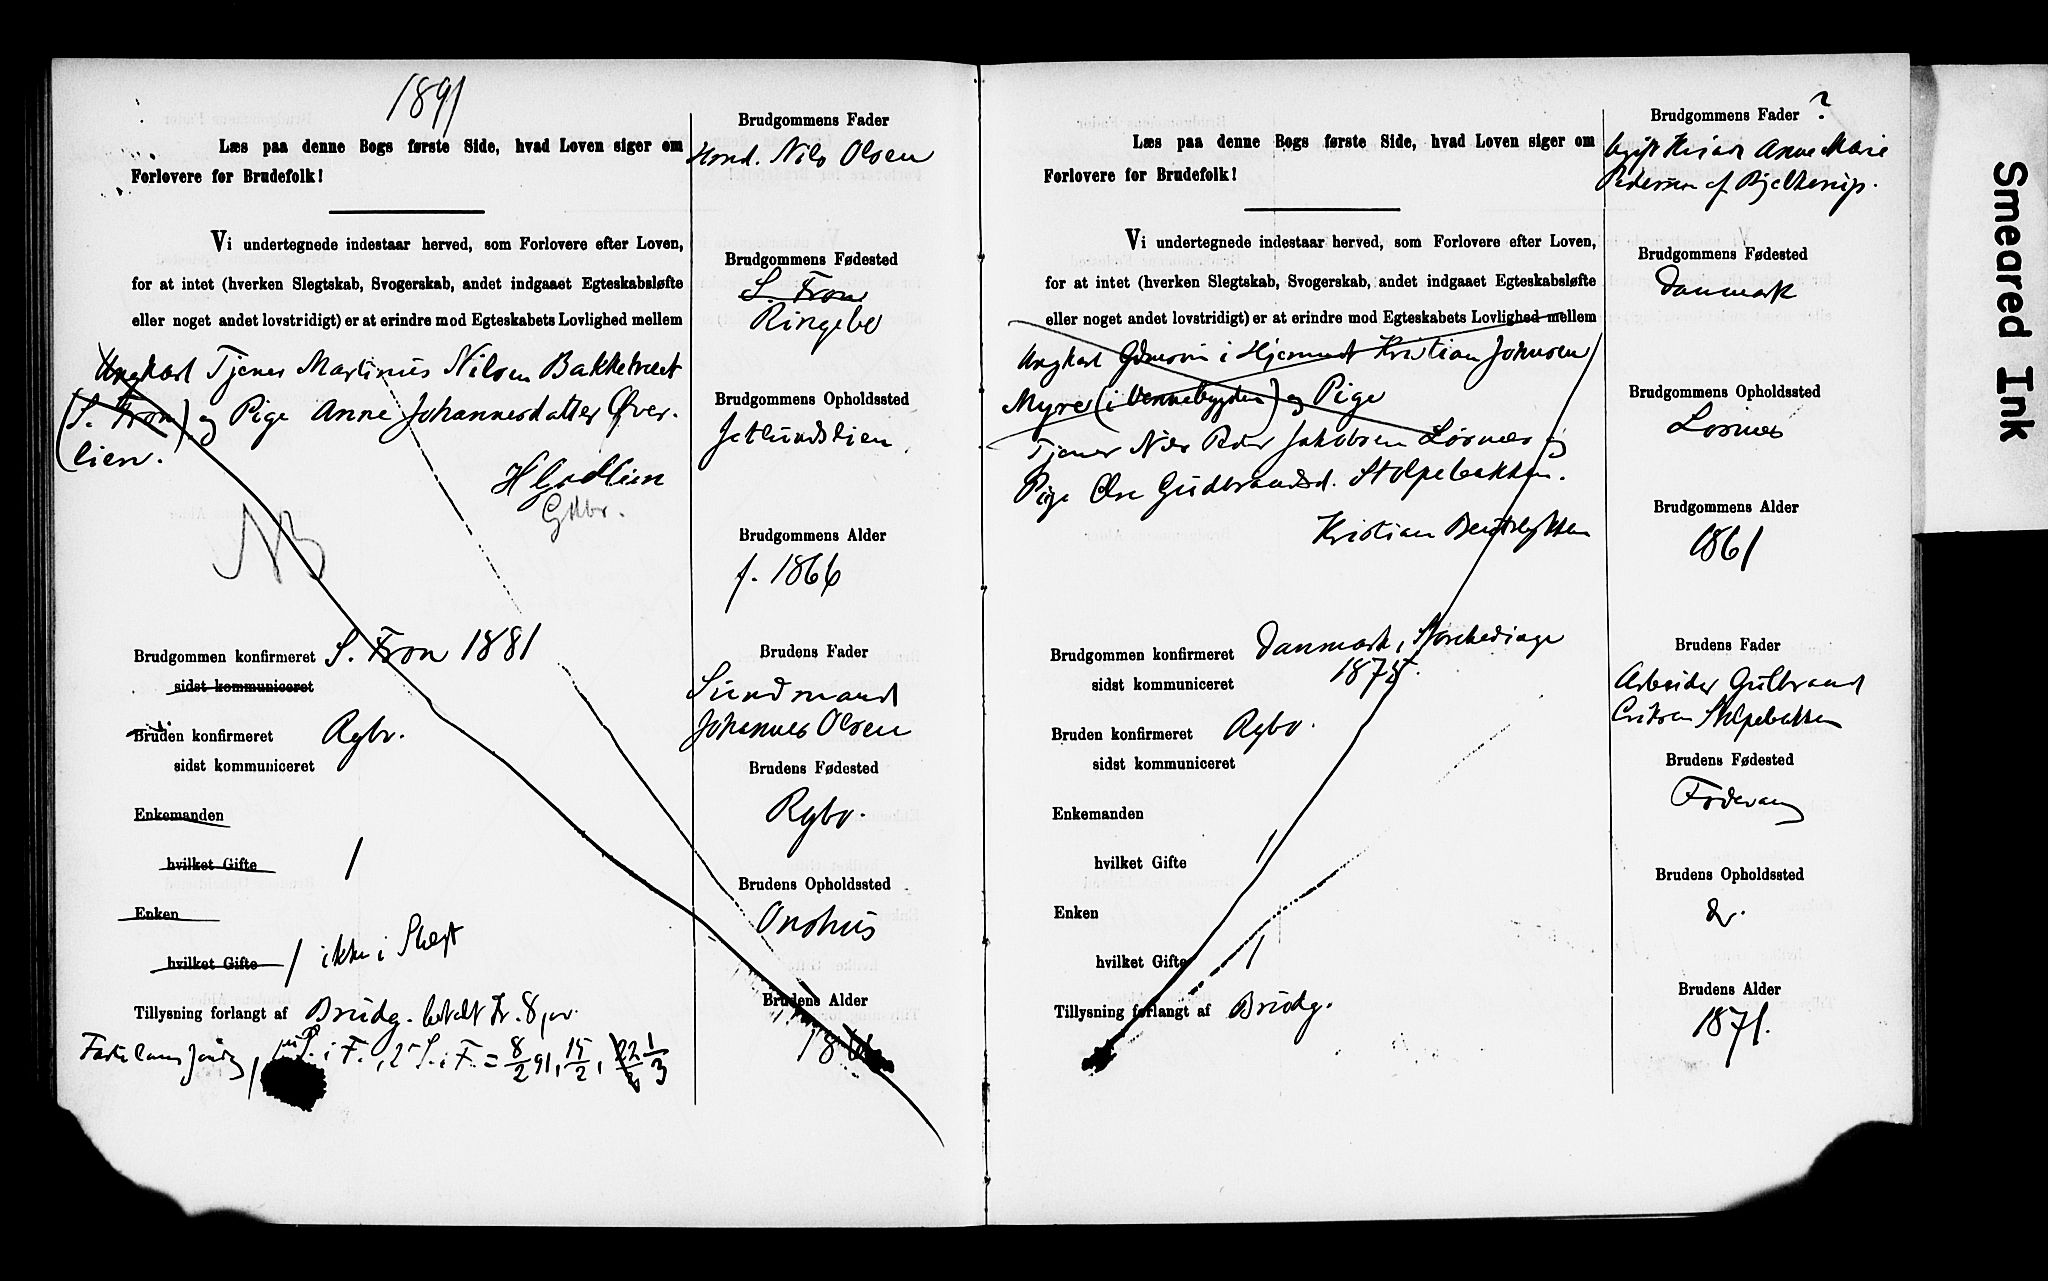 1891
Læs paa denne Bogs første Side, hvad Loven siger om
Forlovere for Brudefolk!
Vi undertegnede indestaar herved, som Forlovere efter Loven,
for at intet (hverken Slegtskab, Svogerskab, andet indgaaet Egteskabsløfte
eller noget andet lovstridigt) er at erindre mod Egteskabets Lovlighed mellem
Ungkarl Tjener Martinus Nilsen Bakketræet
(S. Fron) og Pige Anne Johannesdatter Øver-
lien.
NB
Brudgommen konfirmeret S. Fron 1881
sidst kommuniceret
Bruden konfirmeret Rgbo.
sidst kommuniceret
Enkemanden
hvilket Gifte 1
Enken
hvilket Gifte 1 ikke i Slægt
Tillysning forlangt af Brudg. betalt Kr. 8
S. i F. = 8/2 91, 15/2, 22/2 1/3
Brudgommens Fader
Nils Olsen
Brudgommens Fødested
S. Fron
Ringebo
Brudgommens Opholdssted
Jetlundslien
Brudgommens Alder
f. 1866
Brudens Fader
Johannes Olsen
Brudens Fødested
Rgbo.
Brudens Opholdssted
Onshus
Brudens Alder
Læs paa denne Bogs første Side, hvad Loven siger om
Forlovere for Brudefolk!
Vi undertegnede indestaar herved, som Forlovere efter Loven,
for at intet (hverken Slegtskab, Svogerskab, andet indgaaet Egteskabsløfte
eller noget andet lovstridigt) er at erindre mod Egteskabets Lovlighed mellem
Ungkarl i Kristian Johnsen
Myre (i Vennebygden) og Pige
Tjener Jakobsen Losnæs og
Pige Gudbrandsd. Stolpebakken.
Kristian
Brudgommen konfirmeret Danmark,
sidst kommuniceret 1875.
Bruden konfirmeret Rgbo.
sidst kommuniceret
Enkemanden
hvilket Gifte 1
Enken
hvilket Gifte 1
Tillysning forlangt af Brudg.
Brudgommens Fader ?
Anne Marie
Pedersen af
Brudgommens Fødested
Danmark
Brudgommens Opholdssted
Losnæs
Brudgommens Alder
1861
Brudens Fader
Arbeider Gulbrand
Eriksen Stolpebakken
Brudens Fødested
Fodevang
Brudens Opholdssted
do.
Brudens Alder
1871.
Smeared Ink